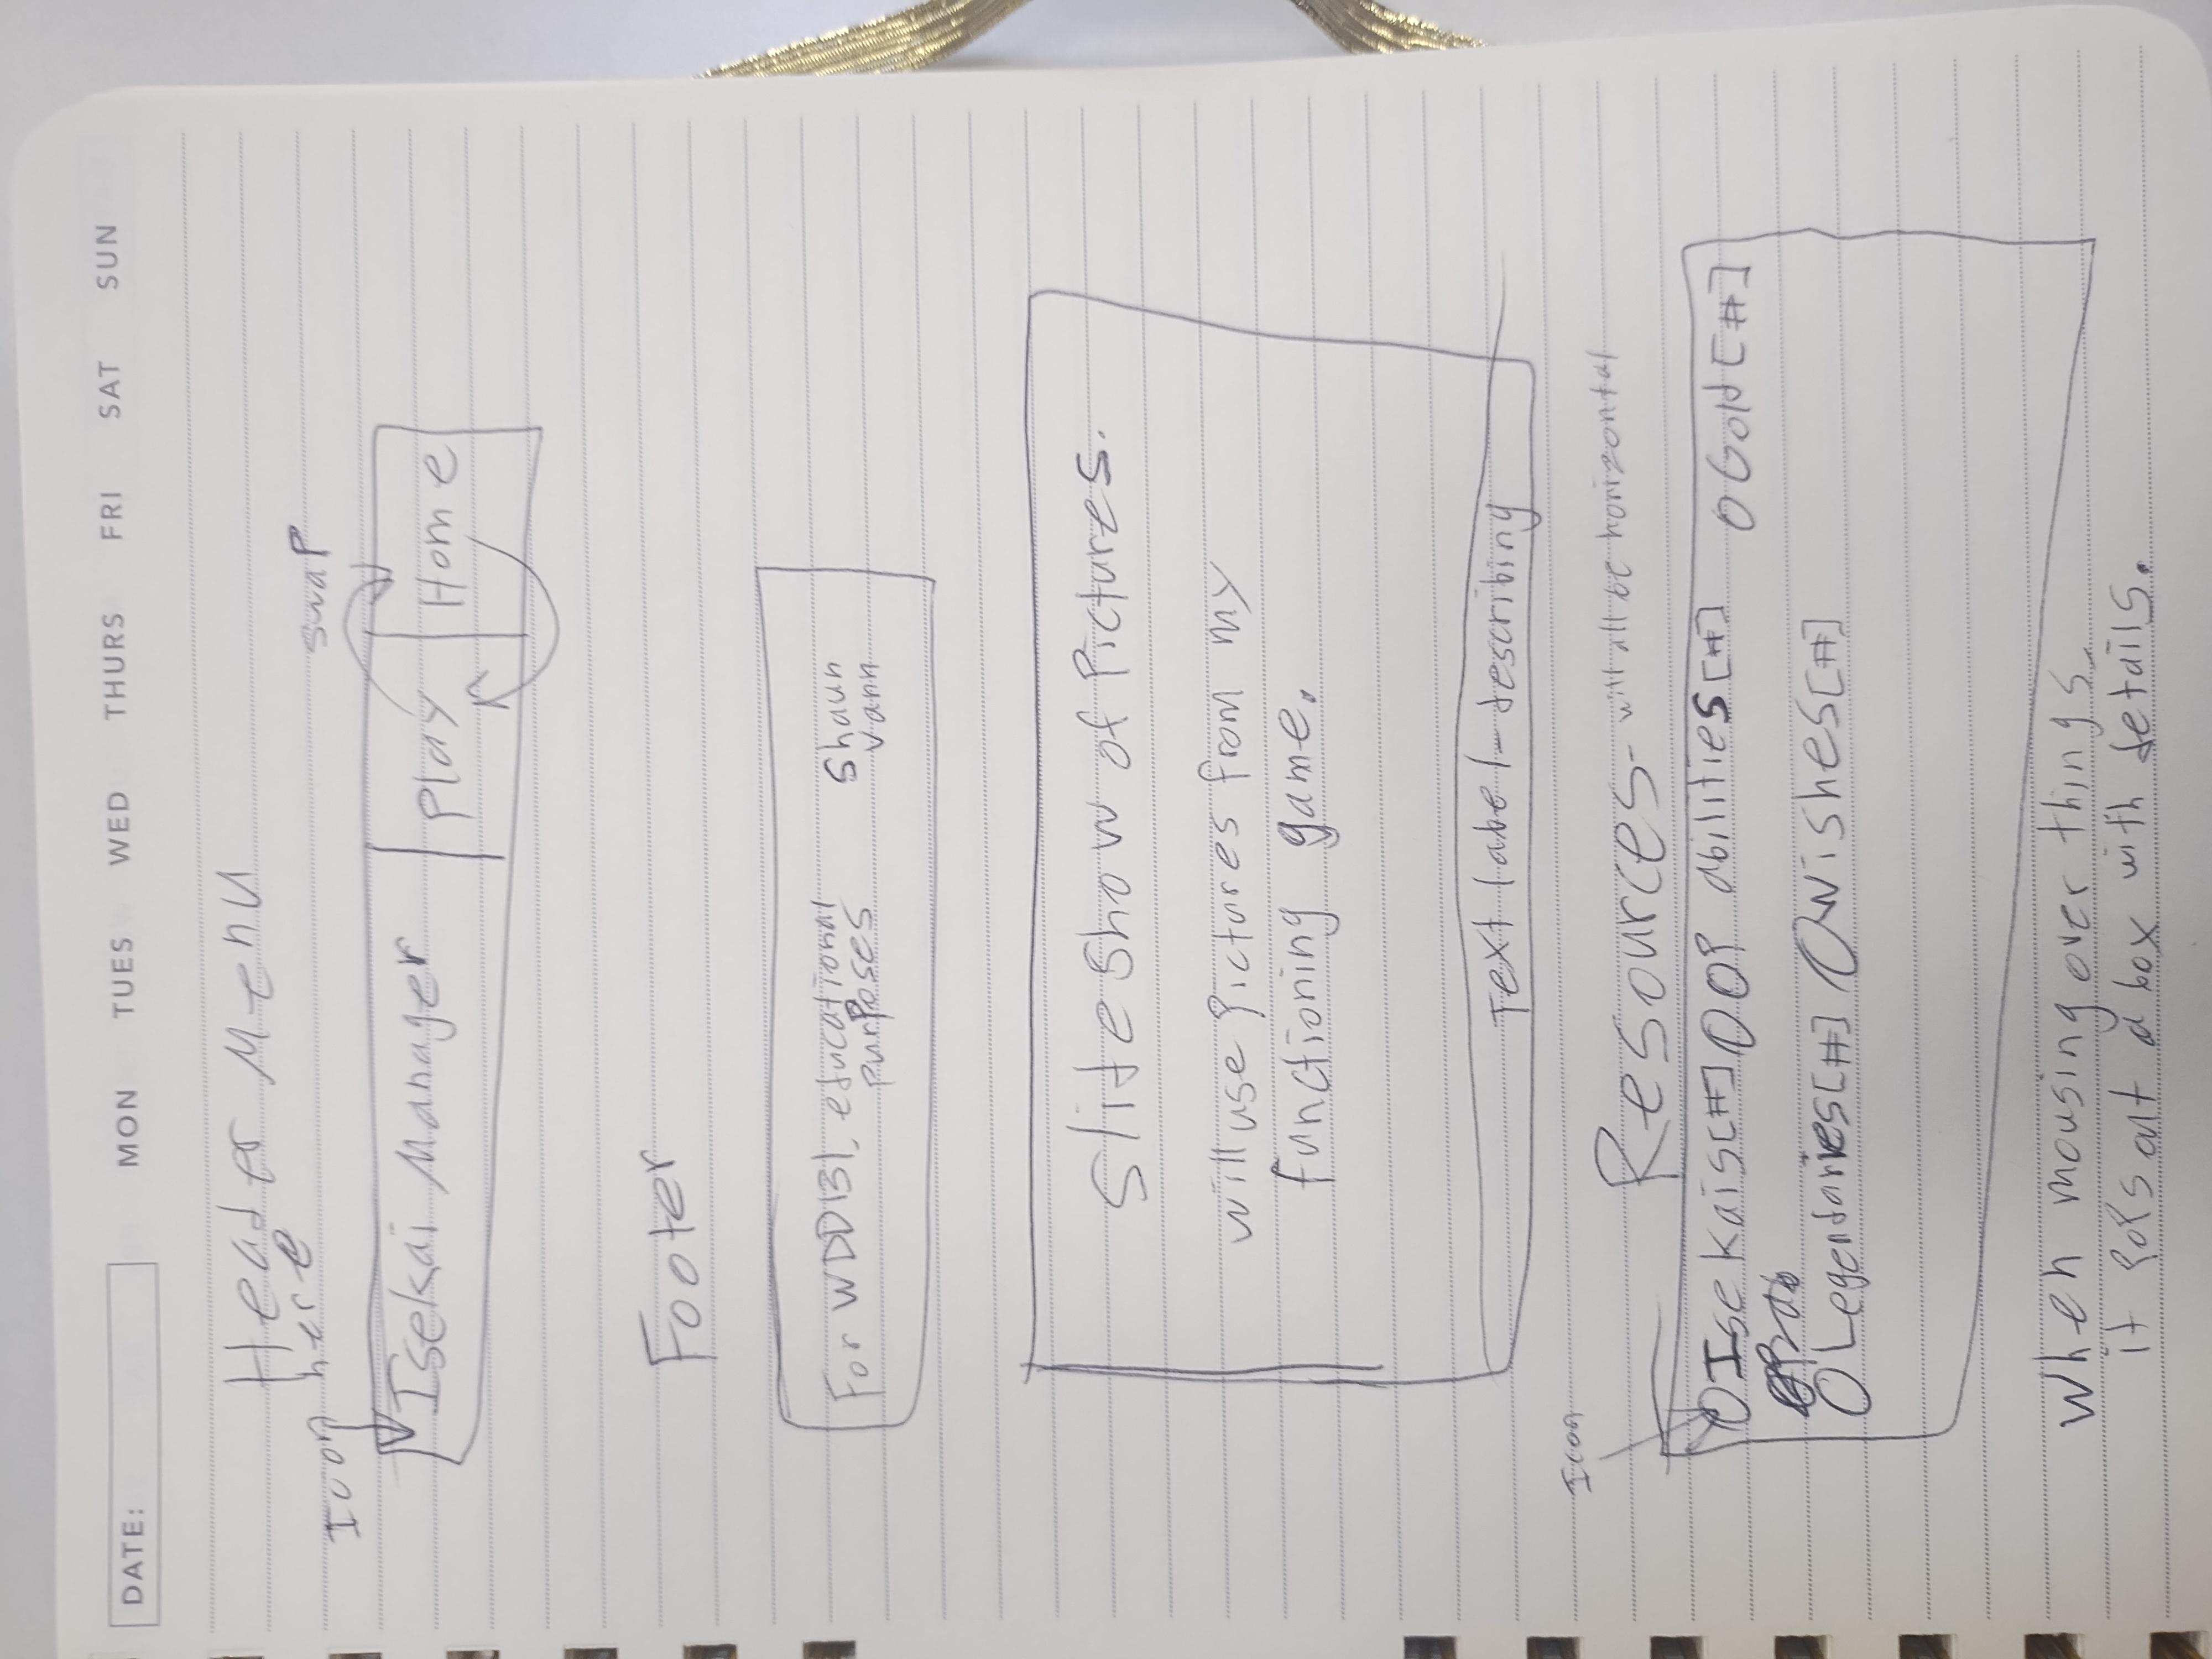 DATE: MON TUES WED THURS FRI SAT SUN
Header Menu
Icon here
swap
Isekai Manager Play Home
Footer
For WDD131, educational Shaun
purposes Vann
Slideshow of Pictures.
will use Pictures from my
functioning game.
Text label-describing
Icon
Resources- will all be horizontal
Isekais[#] OP abilities[#] Gold[#]
Legendaries[#] Wishes[#]
When mousing over things,
it pops out a box with details.